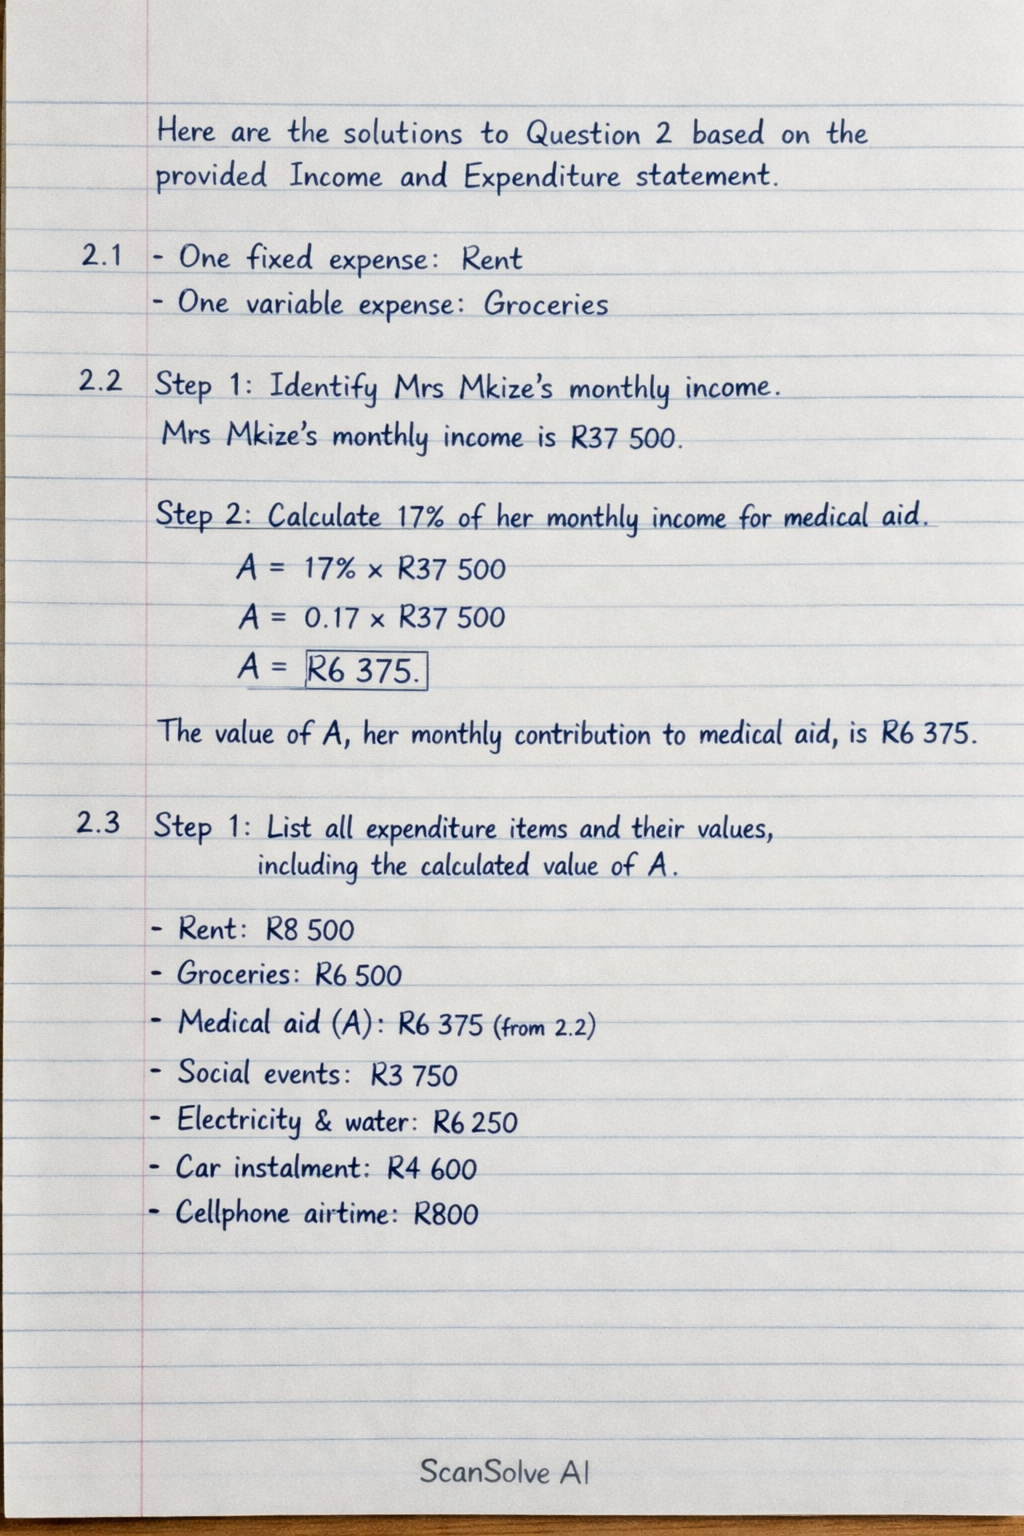 Here are the solutions to Question 2 based on the
provided Income and Expenditure statement.
2.1 - One fixed expense: Rent
- One variable expense: Groceries
2.2 Step 1: Identify Mrs Mkize's monthly income.
Mrs Mkize's monthly income is R37 500.
Step 2: Calculate 17% of her monthly income for medical aid.
A = 17% × R37 500
A = 0.17 × R37 500
A = R6 375.
The value of A, her monthly contribution to medical aid, is R6 375.
2.3 Step 1: List all expenditure items and their values,
including the calculated value of A.
- Rent: R8 500
- Groceries: R6 500
- Medical aid (A): R6 375 (from 2.2)
- Social events: R3 750
- Electricity & water: R6 250
- Car instalment: R4 600
- Cellphone airtime: R800
ScanSolve AI